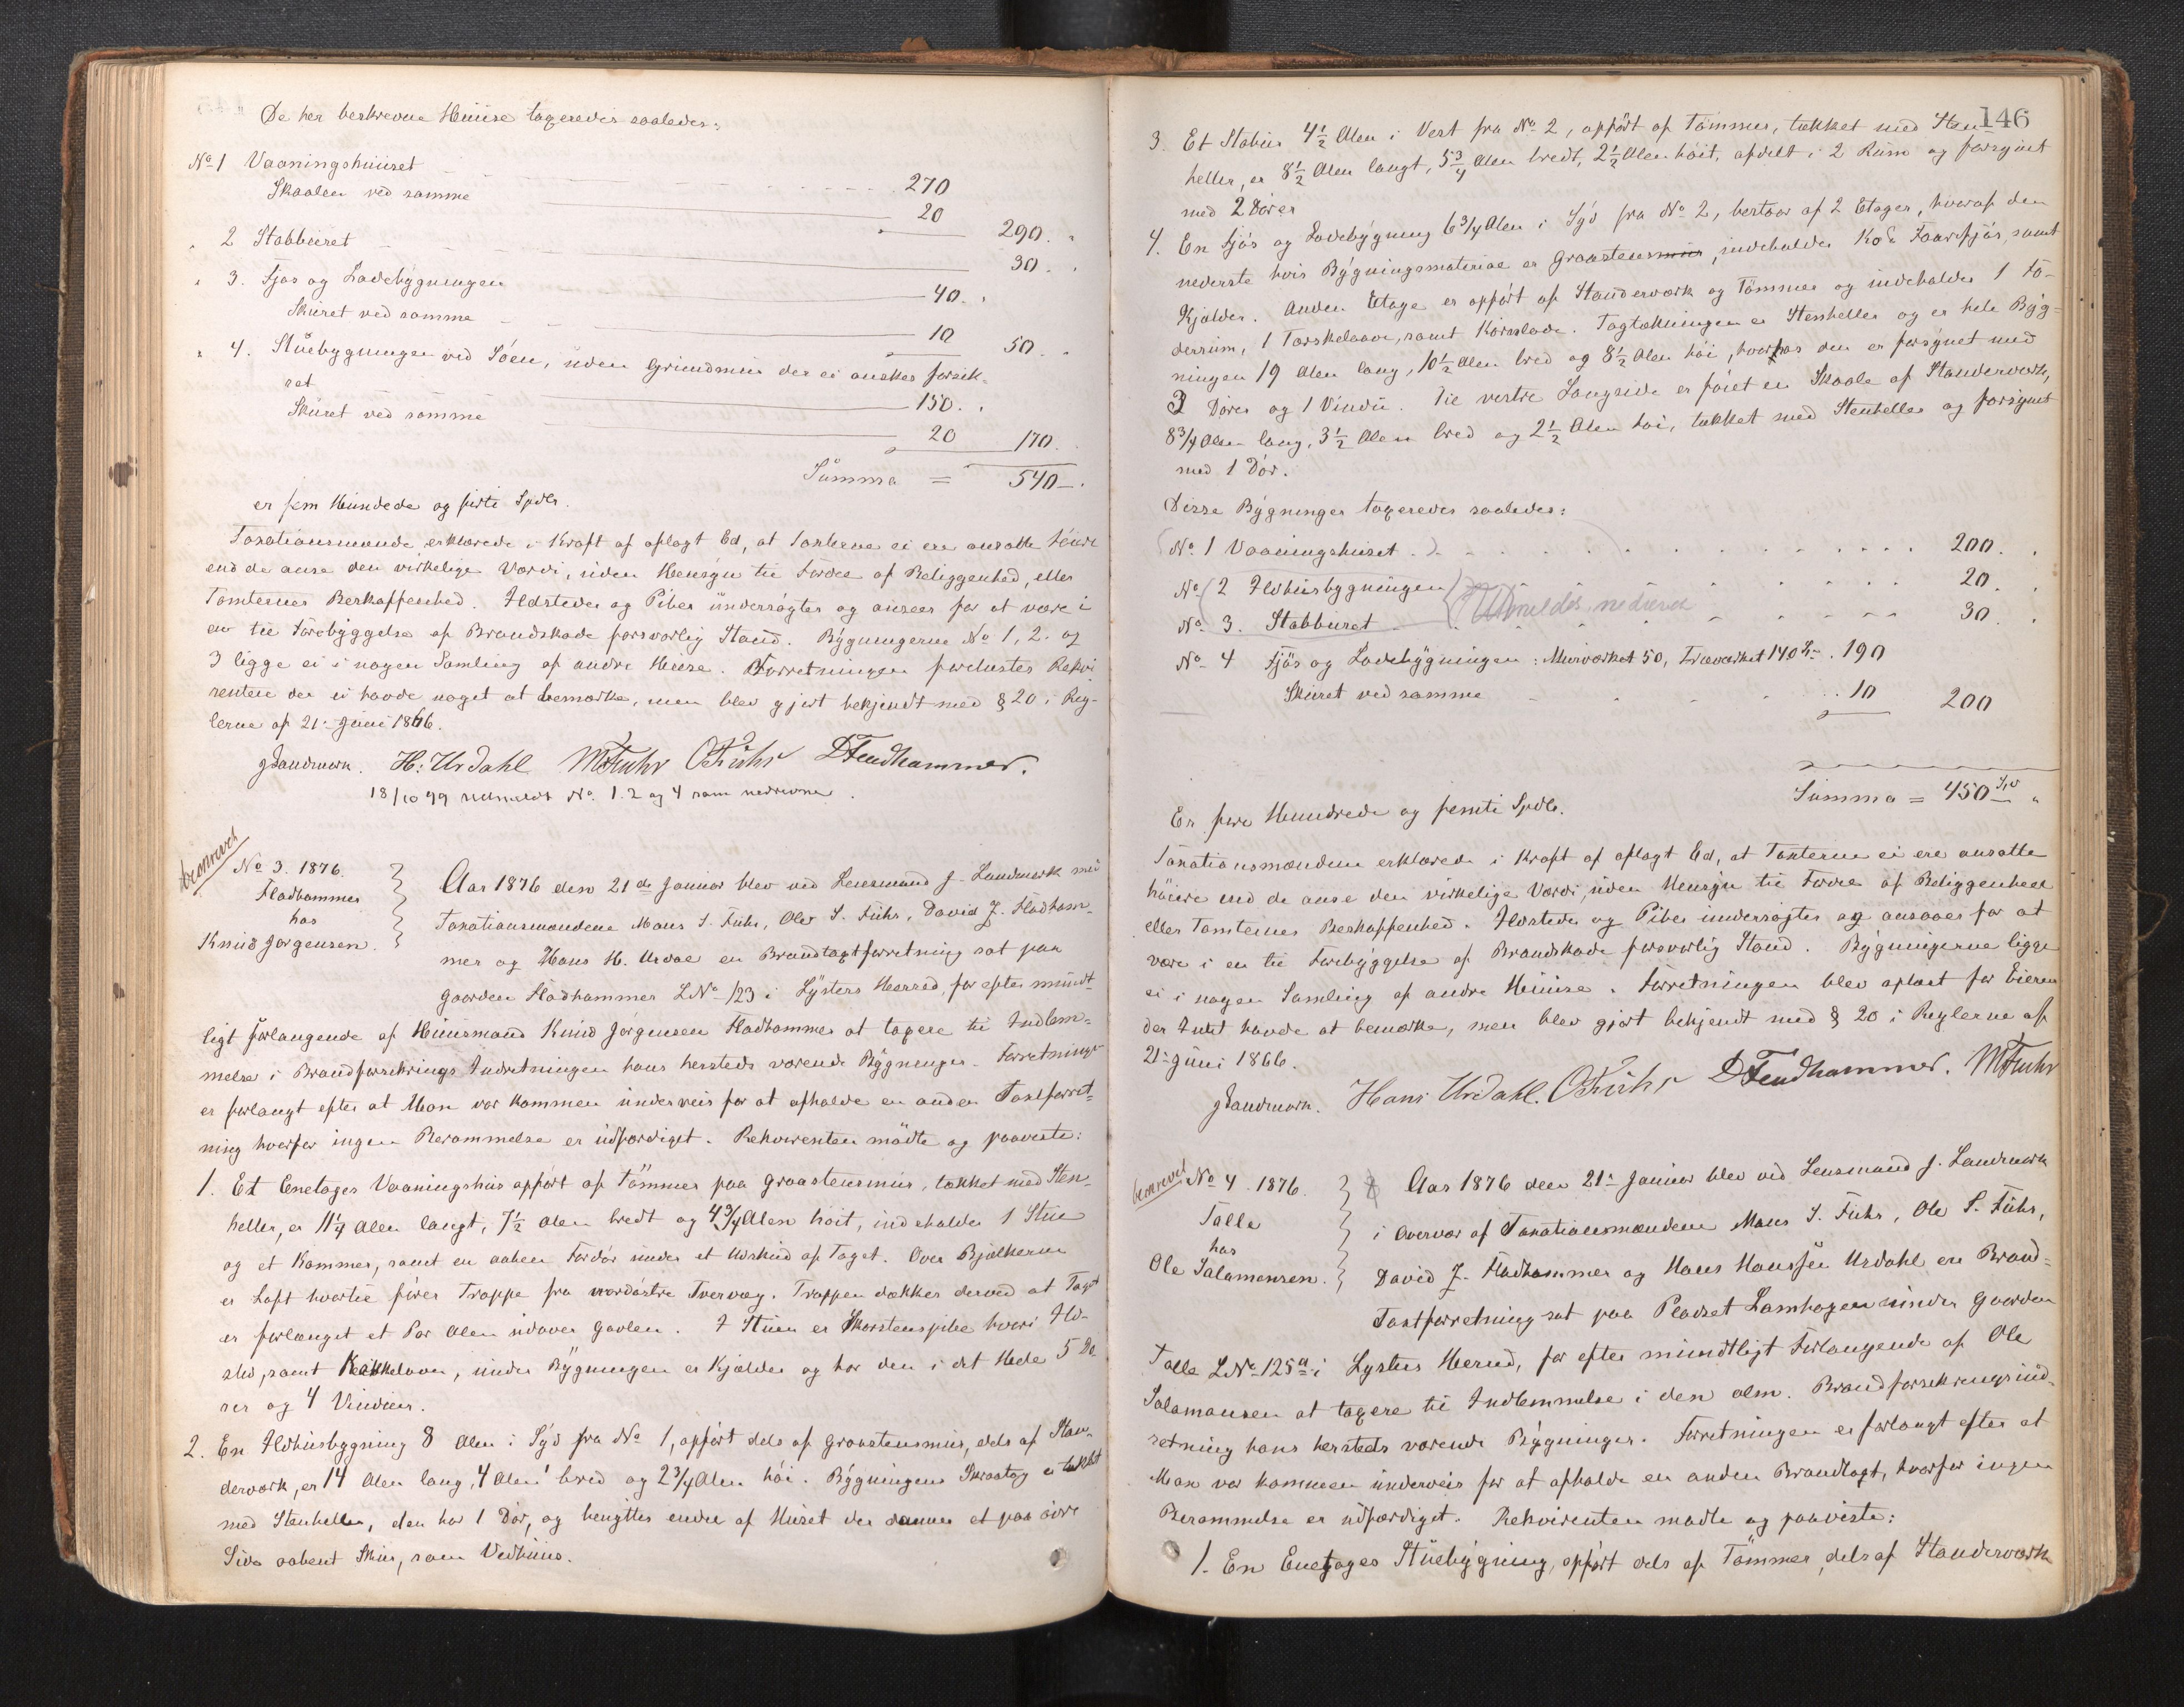 De her beskrevne Huuse taxeredes saaledes:
No 1 Vaaningshuuset 270
Skaalen ved samme 20 290. "
" 2 Stabburet 30. "
" 3. Fjøs og Ladebygningen 40. "
Skuret ved samme 10 50. "
" 4. Stuebygningen ved Søen, uden Grundmur der ei ønskes forsik-
ret 150. "
Skuret ved samme 20 170.
Summa = 540 – .
er fem Hundrede og firti Spdlr.
Taxationsmænde erklærede i Kraft af aflagt Ed, at Taxterne ei ere ansatte höiere
end de anse den virkelige Værdi, uden Hensyn til Fordel af Beliggenhed, eller
Tomternes Beskaffenhed. Ildsteder og Piber undersøgtes og ansees for at være i
en til Forebyggelse af Brandskade forsvarlig Stand. Bygningerne No 1, 2. og
3 ligge ei i nogen Samling af andre Huuse. Forretningen forelæstes Rekvi
renten der ei havde noget at bemærke, men blev gjort bekjendt med § 20 i Reg-
lerne af 21. Juni 1866.
J Landmark. H: Urdahl M Fuhr O Fuhr D Fladhammer.
18/10 99 udmeldt No. 1. 2 og 4 som nedrevne.
beskrevet
No 3. 1876.
Fladhammer
hos
Knud Jørgensen.
Aar 1876 den 21de Januar blev ved Lensmand J. Landmark med
Taxationsmændene Mons S. Fuhr, Ole S. Fuhr, David J. Fladham-
mer og Hans H. Urdal en Brandtaxtforretning sat paa
Gaarden Fladhammer LNo 123 i Lysters Herred, for efter mundt-
ligt Forlangende af Huusmand Knud Jørgensen Fladhammer at taxere til Indlem-
melse i Brandforsikrings Indretningen hans hersteds værende Bygninger. Forretningen
er forlangt efter at Man var kommen underveis for at afholde en anden Taxtforret-
ning hvorfor ingen Berammelse er udfærdiget. Rekvirenten mödte og paaviste:
1. Et Enetages Vaaningshus opført af Tömmer paa Graasteensmur, tækket med Sten-
heller, er 11 1/4 Alen langt, 7 1/2 Alen bredt og 4 3/4 Alen höit, indeholder 1 Stue
og et Kammer, samt en aaben Fordør under et Udskud af Taget. Over Bjælkerne
er Loft hvortil fører Trappe fra nordøstre Tvervæg. Trappen dækkes derved at Taget
er forlænget et Par Alen udover Gavlen. I Stuen er Skorstenspibe hvori Ild-
sted, samt Kakkelovn, under Bygningen er Kjælder og har den i det Hele 5 Dö-
rer og 4 Vinduer.
2. En Ildhusbygning 8 Alen i Syd fra No 1, opført dels af Graasteensmur, dels af Stav-
derværk, er 14 Alen lang, 4 Alen bred og 2 3/4 Alen höi. Bygningens Skraatag er tækket
med Stenheller, den har 1 Dör, og benyttes endel af Huset der danner et paa øvre
Side aabent Skur, som Vedhuus.
146
3. Et Stabur 4 1/2 Alen i Vest fra No 2, opført af Tömmer, tækket med Sten-
heller, er 8 1/2 Alen langt, 5 3/4 Alen bredt, 2 1/2 Alen höit, afdelt i 2 Rum og forsynet
med 2 Dører
4. En Fjøs og Ladebygning 6 3/4 Alen i Syd fra No 2, bestaar af 2 Etager, hvoraf den
nederste hvis Bygningsmateriae er Graasteensmur, indeholder Ko & Faarefjøs, samt
Kjælder. Anden Etage er opført af Standerværk og Tömmer og indeholder 1 Fo-
derrum, 1 Tærskelaave, samt Kornlade. Tagtækningen er Stenheller og er hele Byg-
ningen 19 Alen lang, 10 1/2 Alen bred og 8 1/2 Alen höi, hvorhos den er forsynet med
3 Dører og 1 Vindu. Til vestre Langside er føiet en Skaale af Standerværk,
8 3/4 Alen lang, 3 1/2 Alen bred og 2 1/2 Alen höi, tækket med Stenheller og forsynet
med 1 Dör.
Disse Bygninger taxeredes saaledes:
No. 1 Vaaningshuset 200. "
No. 2 Ildhusbygningen 20. "
No. 3. Stabburet 30. "
Udmeldes nedrevet
No. 4 Fjøs og Ladebygningen: Murværket 50, Træværket 140 190
Skuret ved samme 10 200
Summa = 450 Spd "
Er fire Hundrede og femti Spdlr.
Taxationsmændene erklærede i Kraft af aflagt Ed, at Taxterne ei ere ansatte
höiere end de anse den virkelige Værdi, uden Hensyn til Fordel af Beliggenhed
eller Tomternes Beskaffenhed. Ildsteder og Piber undersøgtes og ansaaes for at
være i en til Forebyggelse af Brandskade forsvarlig Stand. Bygningerne ligge
ei i nogen Samling af andre Huuse. Forretningen blev oplæst for Eieren
der Intet havde at bemærke, men blev gjort bekjendt med § 20 i Reglerne af
21. Juni 1866.
J Landmark. Hans Urdahl. O Fuhr D Fladhammer. M Fuhr
beskrevet
No 4. 1876.
Talle
hos
Ole Salamonsen.
Aar 1876 den 21. Januar blev ved Lensmand J. Landmark
i Overvær af Taxationsmændene Mons S. Fuhr, Ole S. Fuhr,
David J. Fladhammer og Hans Hanssen Urdahl en Brand-
Taxtforretning sat paa Pladset Lamhagen under Gaarden
Talle LNo 125a i Lysters Herred, for efter mundtligt Forlangende af Ole
Salamonsen at taxere til Indlemmelse i den alm. Brandforsikringsind-
retning hans hersteds værende Bygninger. Forretningen er forlangt efter at
Man var kommen underveis for at afholde en anden Brandtaxt, hvorfor ingen
Berammelse er udfærdiget. Rekvirenten mødte og paaviste:
1. En Enetages Stuebygning, opført dels af Tömmer, dels af Standerværk